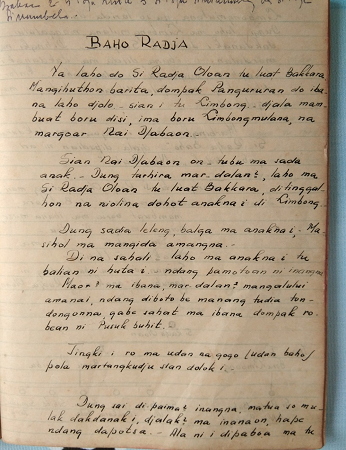 BAHO RADJA
Ya laho do Si Radja Oloan tu luat Bakkara.
Mangihuthon barita, dompak Pangururan do iba-
na laho djolo - sian i tu Limbong - djala man-
buat boru disi, ima boru Limbongmulana, na
margoar Nai Djabaon.-
Sian Nai Djabaon on - tubu ma sada
anak.- Dung turhira mar-dalan², laho ma
Si Radja Oloan tu luat Bakkara, ditinggal-
hon na niolina dohot anakna i di Limbong
Dung sadia leleng, balga ma anakna i, - Ma-
sihol ma mangida amangna.-
Di na sahali - laho ma anakna i tu
balian ni huta i - ndang pamotoan ni inangna
ma ibana, mar-dalan² mangalului
amanai, ndang diboto be manang tudia ton-
dongonna, gabe sahat ma ibana dompak ro-
bean ni Pusuk buhit.-
Tingki i ro ma udan na gogo (udan baho)
pola martangkudju sian dolok i.-
Dung sai di paima² inangna, matua so mu-
lak dakdanak i, djalak² ma inanaon, hape
ndang dapotsa.- Ala ni i dipaboa ma tu